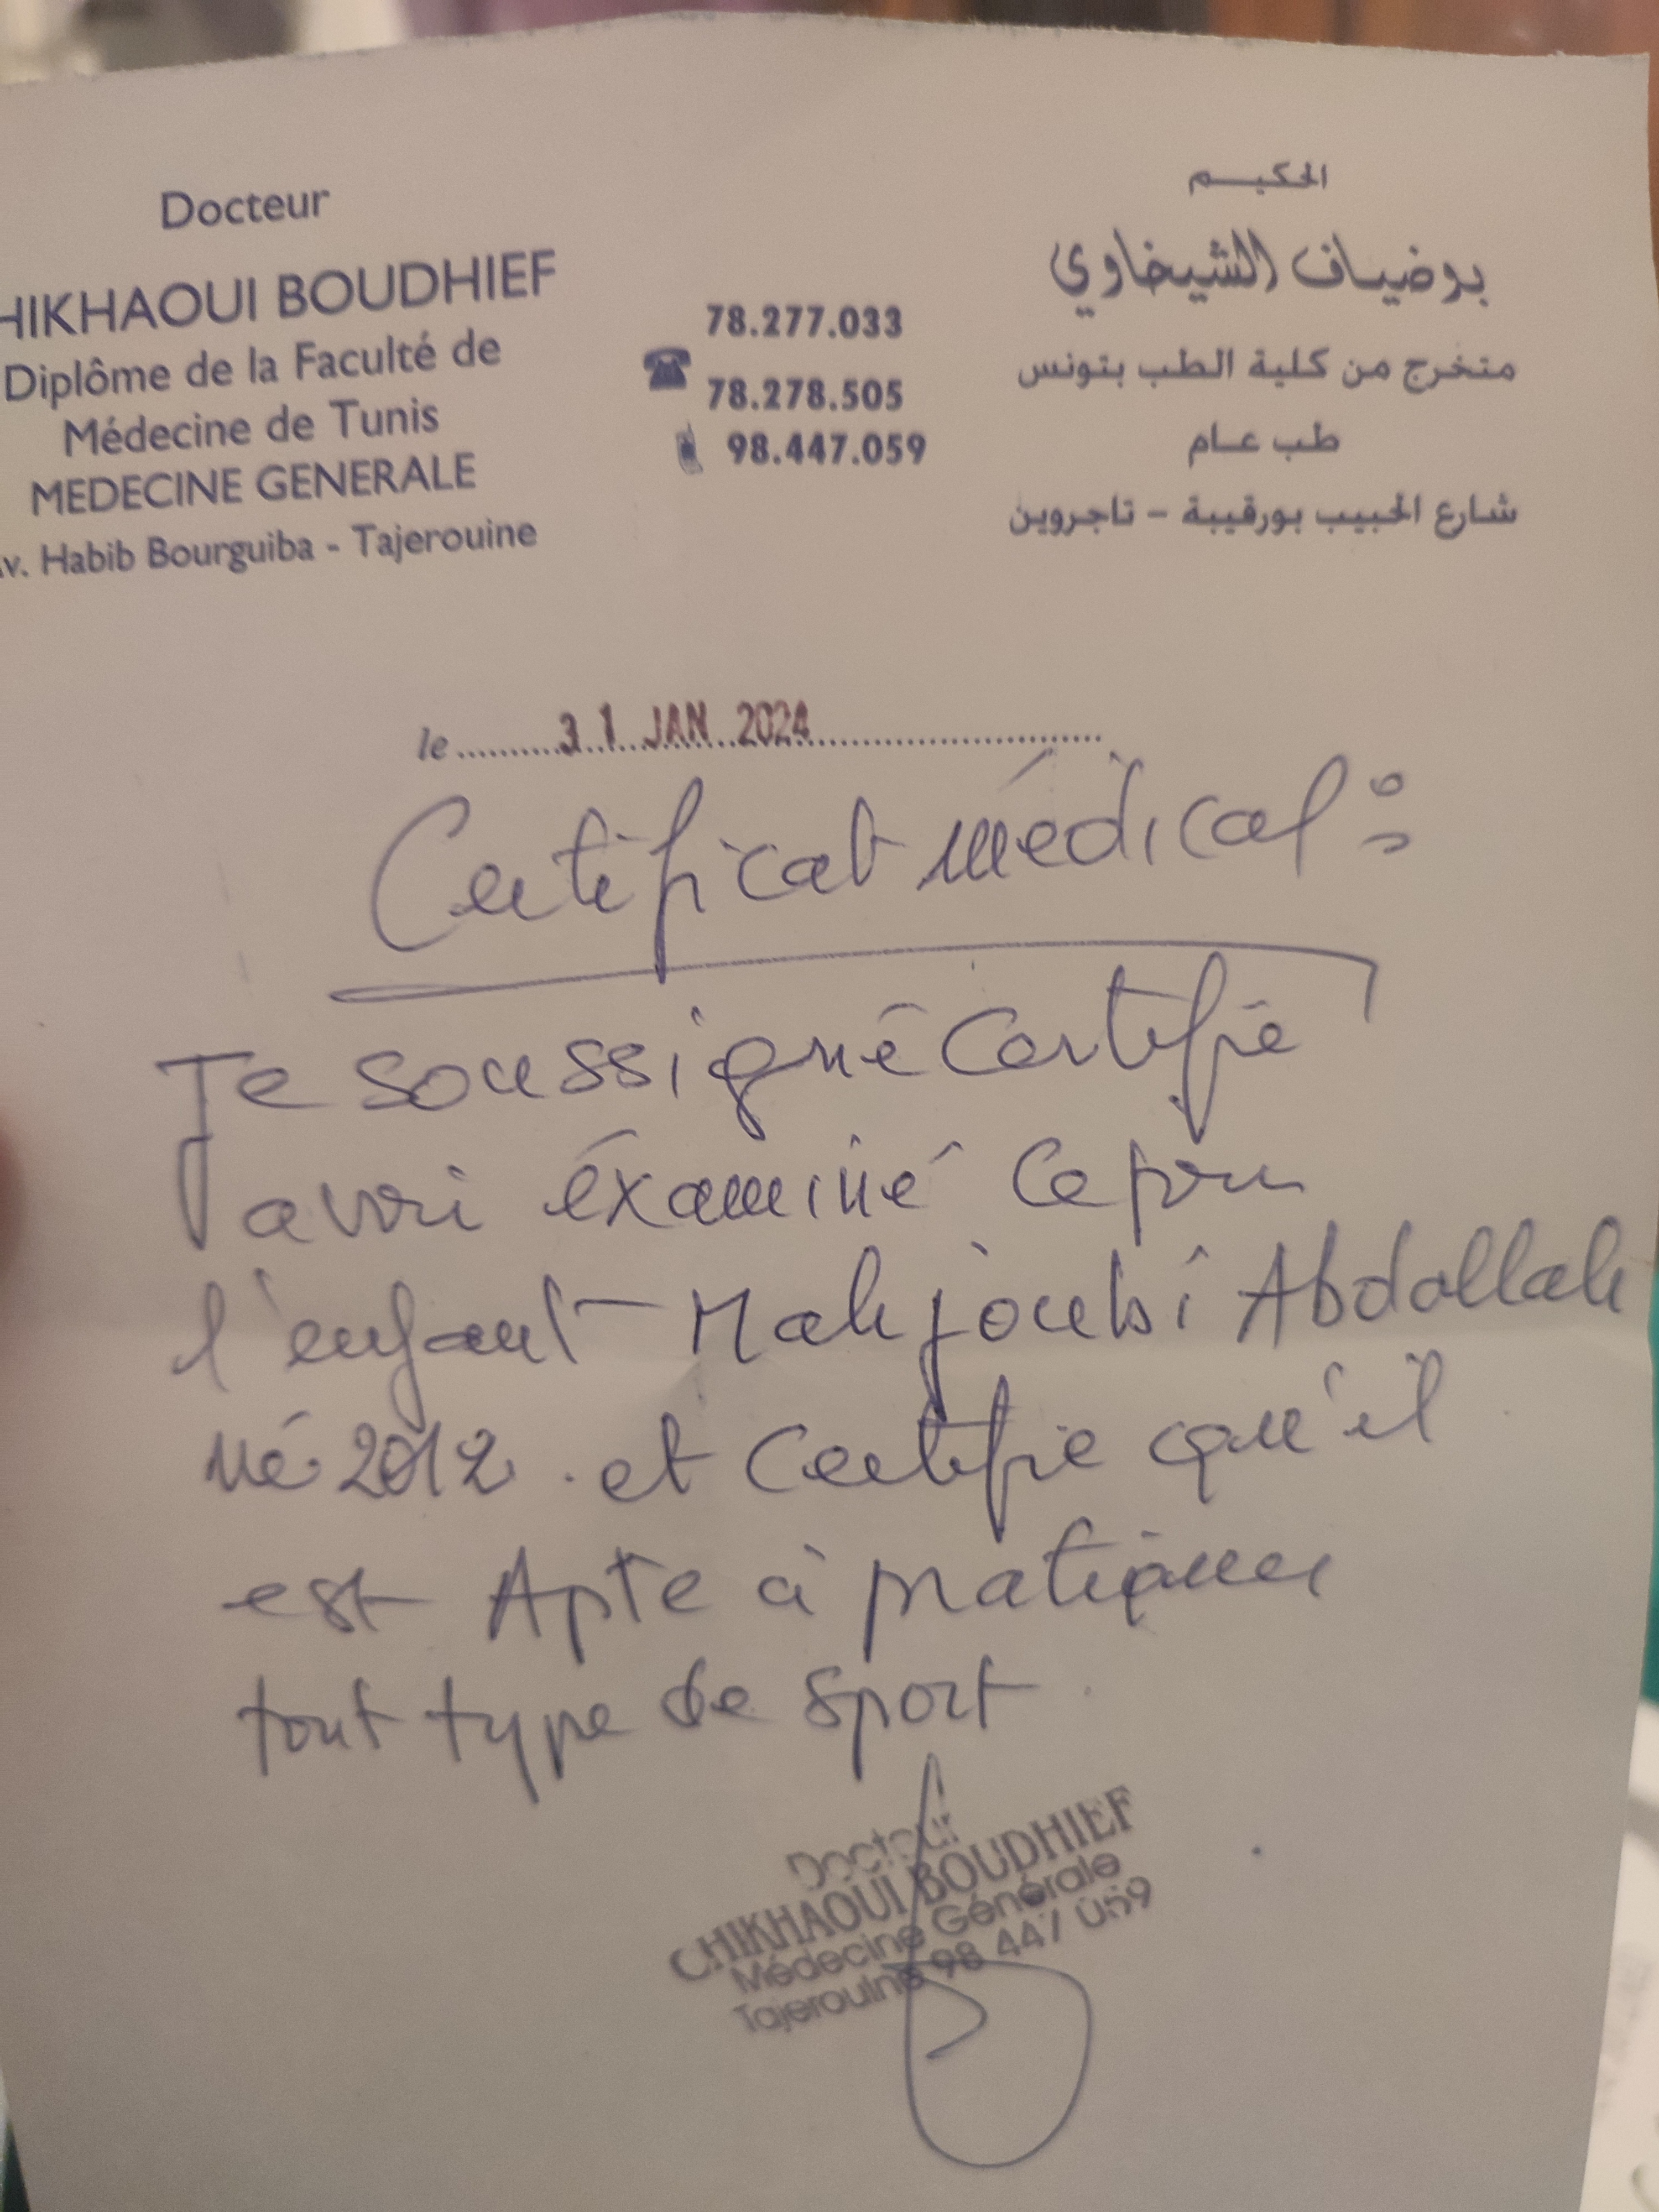 Docteur
HIKHAOUI BOUDHIEF
Diplôme de la Faculté de
Médecine de Tunis
MEDECINE GENERALE
v. Habib Bourguiba - Tajerouine
78.277.033
78.278.505
98.447.059
الحكيم
بوضياف الشيخاوي
متخرج من كلية الطب بتونس
طب عام
شارع الحبيب بورقيبة - تاجروين
le 31 JAN 2024
Certificat médical :
Je soussigné certifie
avoir éxaminé ce jour
l'enfant Mahjoubi Abdallah
né 2012 . et certifie qu'il
est Apte à pratiquer
tout type de sport .
Docteur
CHIKHAOUI BOUDHIEF
Médecine Générale
Tajerouine 98 447 059